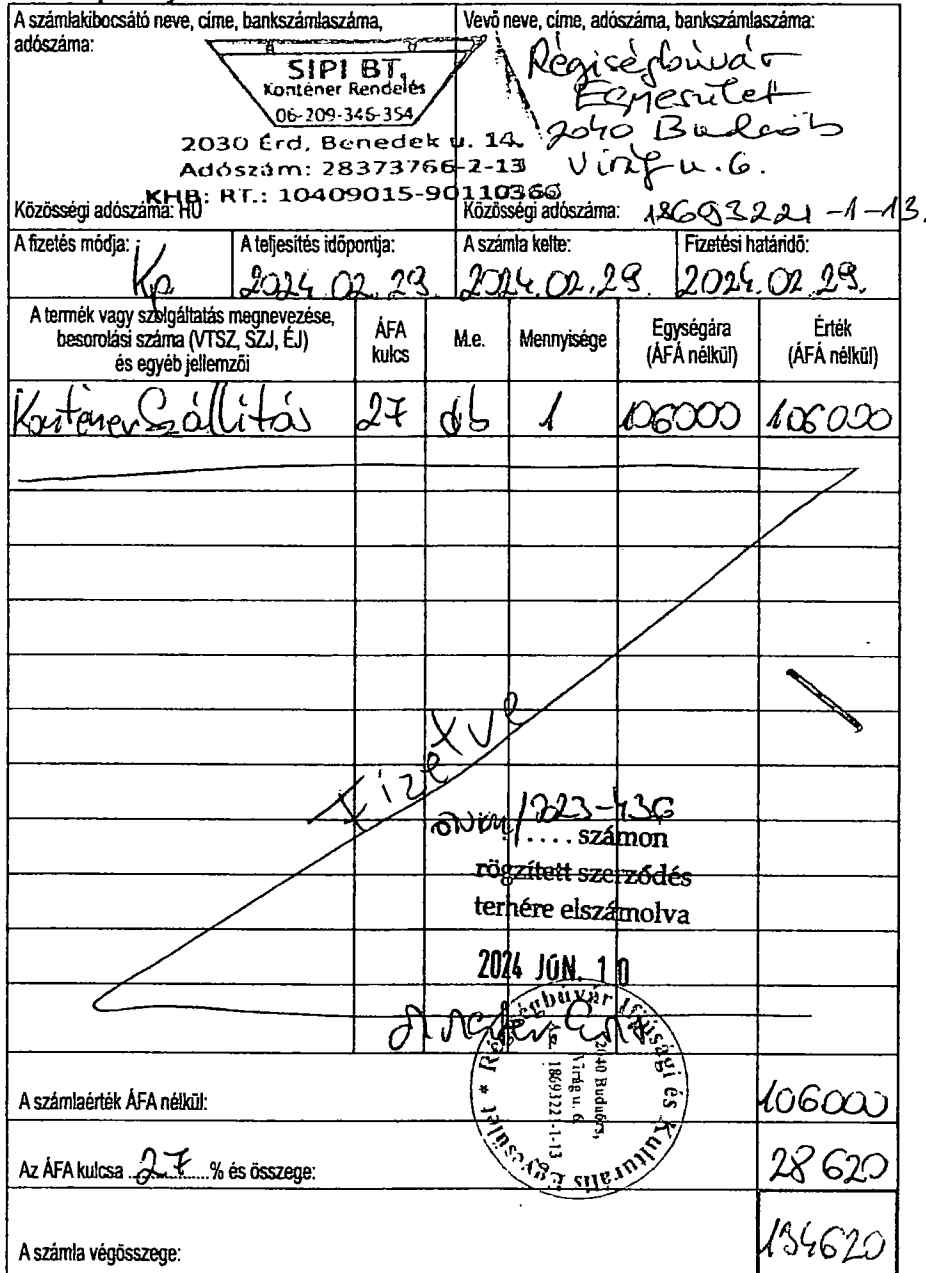 A számlakibocsátó neve, címe, bankszámlaszáma,
adószáma:
SIPI BT.
Konténer Rendelés
06-209-346-354
2030 Érd, Benedek u. 14.
Adószám: 28373766-2-13
KHB: RT.: 10409015-90110366
Közösségi adószáma: HU
Vevő neve, címe, adószáma, bankszámlaszáma:
Régiségbúvár
Egyesület
2040 Budaörs
Virág u. 6.
Közösségi adószáma: 18693221-1-13.
A fizetés módja:
Kp
A teljesítés időpontja:
2024.02.29.
A számla kelte:
2024.02.29.
Fizetési határidő:
2024.02.29.
A termék vagy szolgáltatás megnevezése,
besorolási száma (VTSZ, SZJ, ÉJ)
és egyéb jellemzői
ÁFA
kulcs
M.e.
Mennyisége
Egységára
(ÁFA nélkül)
Érték
(ÁFA nélkül)
Konténer Szállítás 27 db 1 106000 106000
Fizetve
/2023-436
.... számon
rögzített szerződés
terhére elszámolva
2024 JÚN. 10
Régiségbúvár Ifjúsági és Kulturális Egyesület *
2040 Budaörs,
Virág u. 6.
18693221-1-13
A számlaérték ÁFA nélkül: 106000
Az ÁFA kulcsa 27 % és összege: 28620
A számla végösszege: 134620